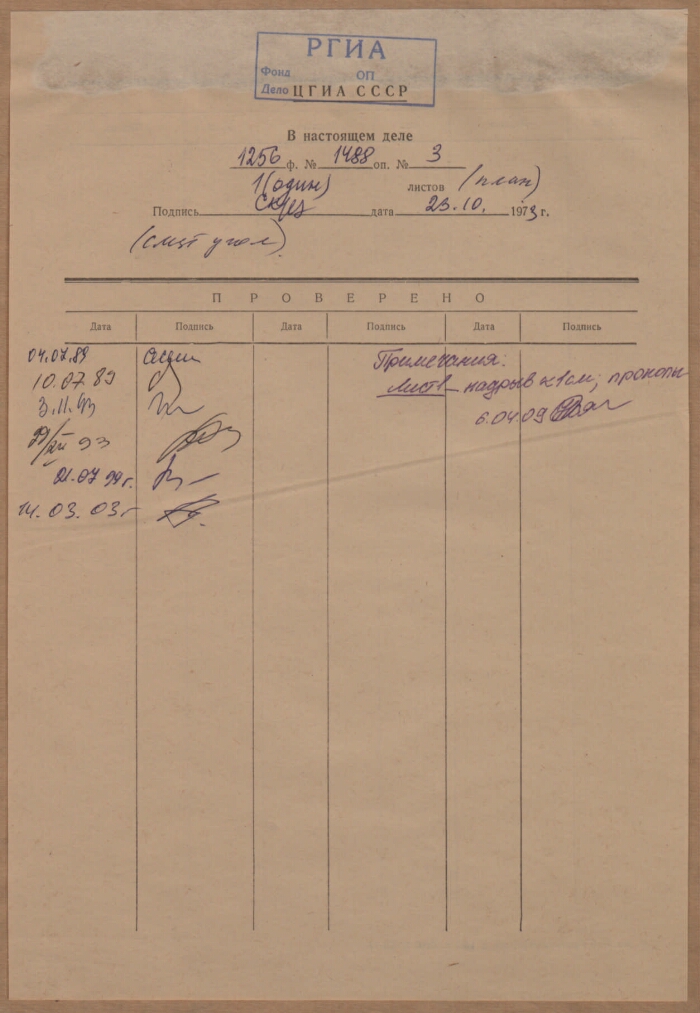 РГИА
Фонд оп
Дело ЦГИА СССР
В настоящем деле
1256 ф. № 1488 оп. № 3
1 (один) листов (план)
Подпись дата 23.10. 1973 г.
угол)
ПРОВЕРЕНО
Дата Подпись Дата Подпись Дата Подпись
04.07.89 Примечания:
10.07.89 Лист 1 – надрыв <1см; проколы
3.11.93 6.04.09
93
21.07 99 г.
14. 03. 03 г